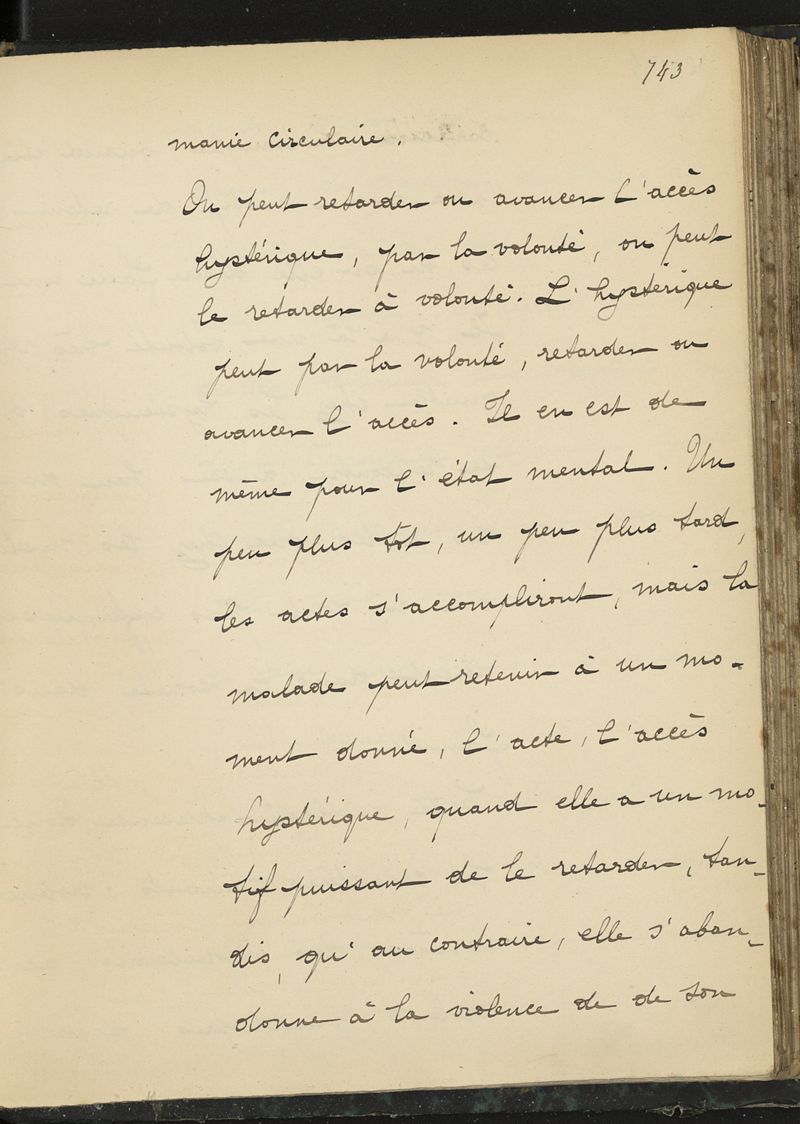 743
manie circulaire.
On peut retarder ou avancer l'accès
hystérique, par la volonté, on peut
le retarder à volonté. L'hystérique
peut par la volonté, retarder ou
avancer l'accès. Il en est de
même pour l'état mental. Un
peu plus tôt, un peu plus tard,
les actes s'accompliront, mais la
malade peut retenir à un mo-
ment donné, l'acte, l'accès
hystérique, quand elle a un mo-
tif puissant de le retarder, tan-
dis, qu'au contraire, elle s'aban-
donne à la violence de de son